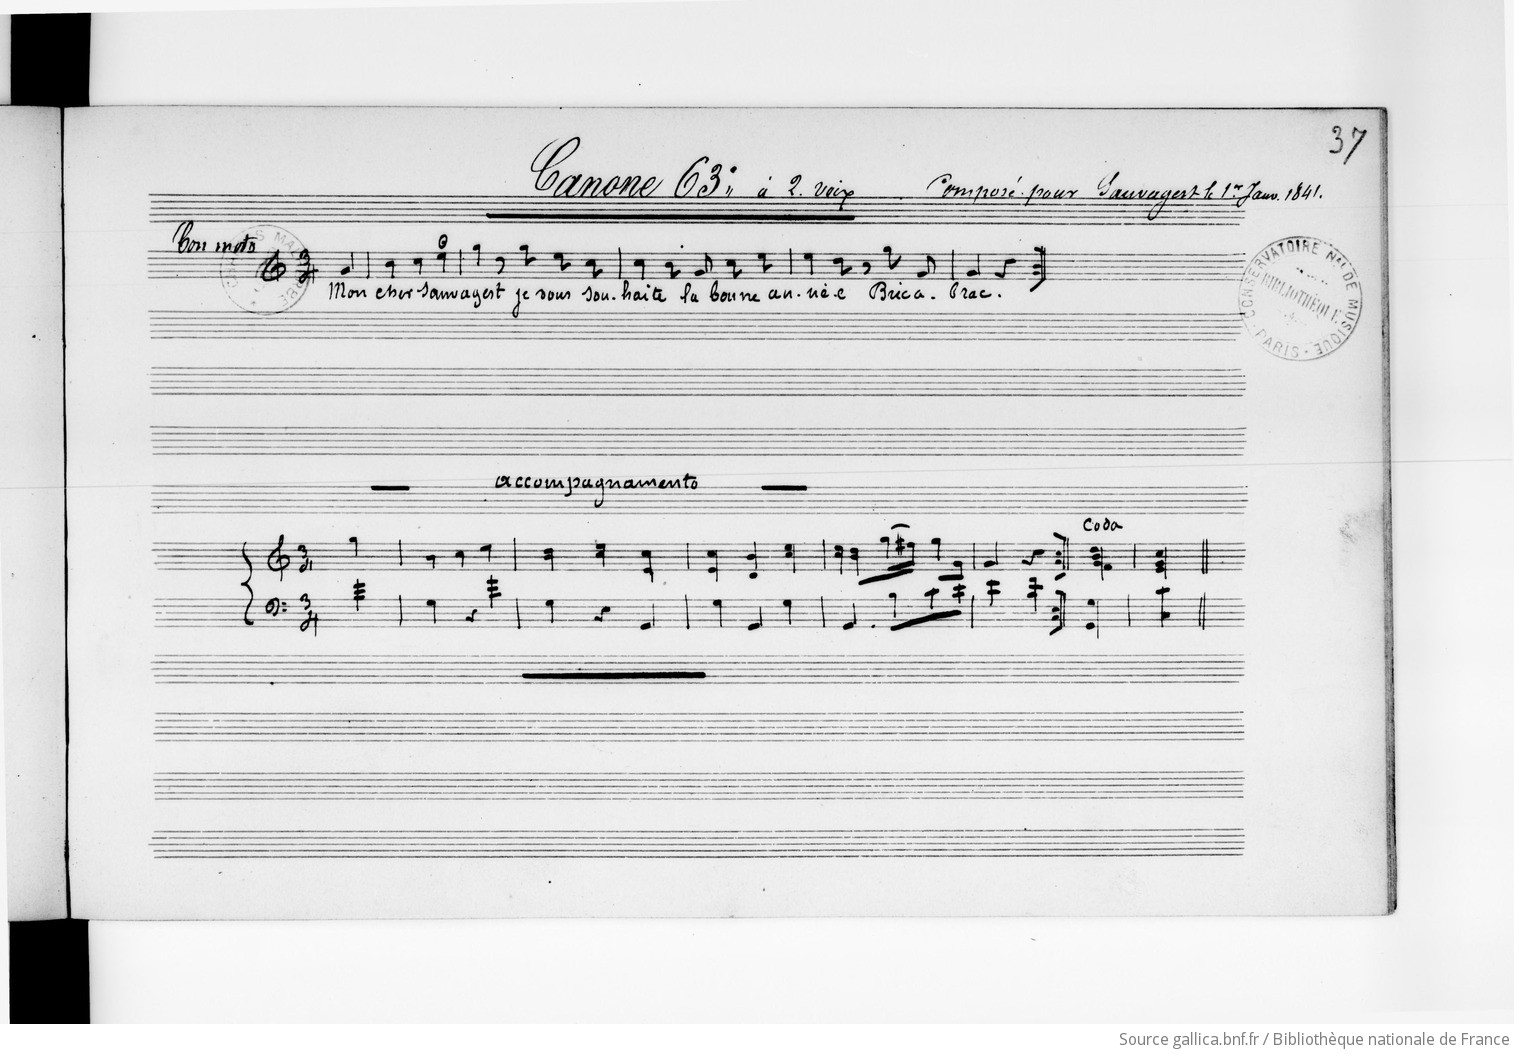 37
Canone 63º à 2. voix Composé pour Sauvagest le 1er Janv. 1841.
Con moto
Mon cher Sauvagest je vous sou-haite la bonne an-né-e Bric a. brac.
CONSERVATOIRE Nal DE MUSIQUE
BIBLIOTHÈQUE
PARIS
accompagnamento
Coda
Source gallica.bnf.fr / Bibliothèque nationale de France